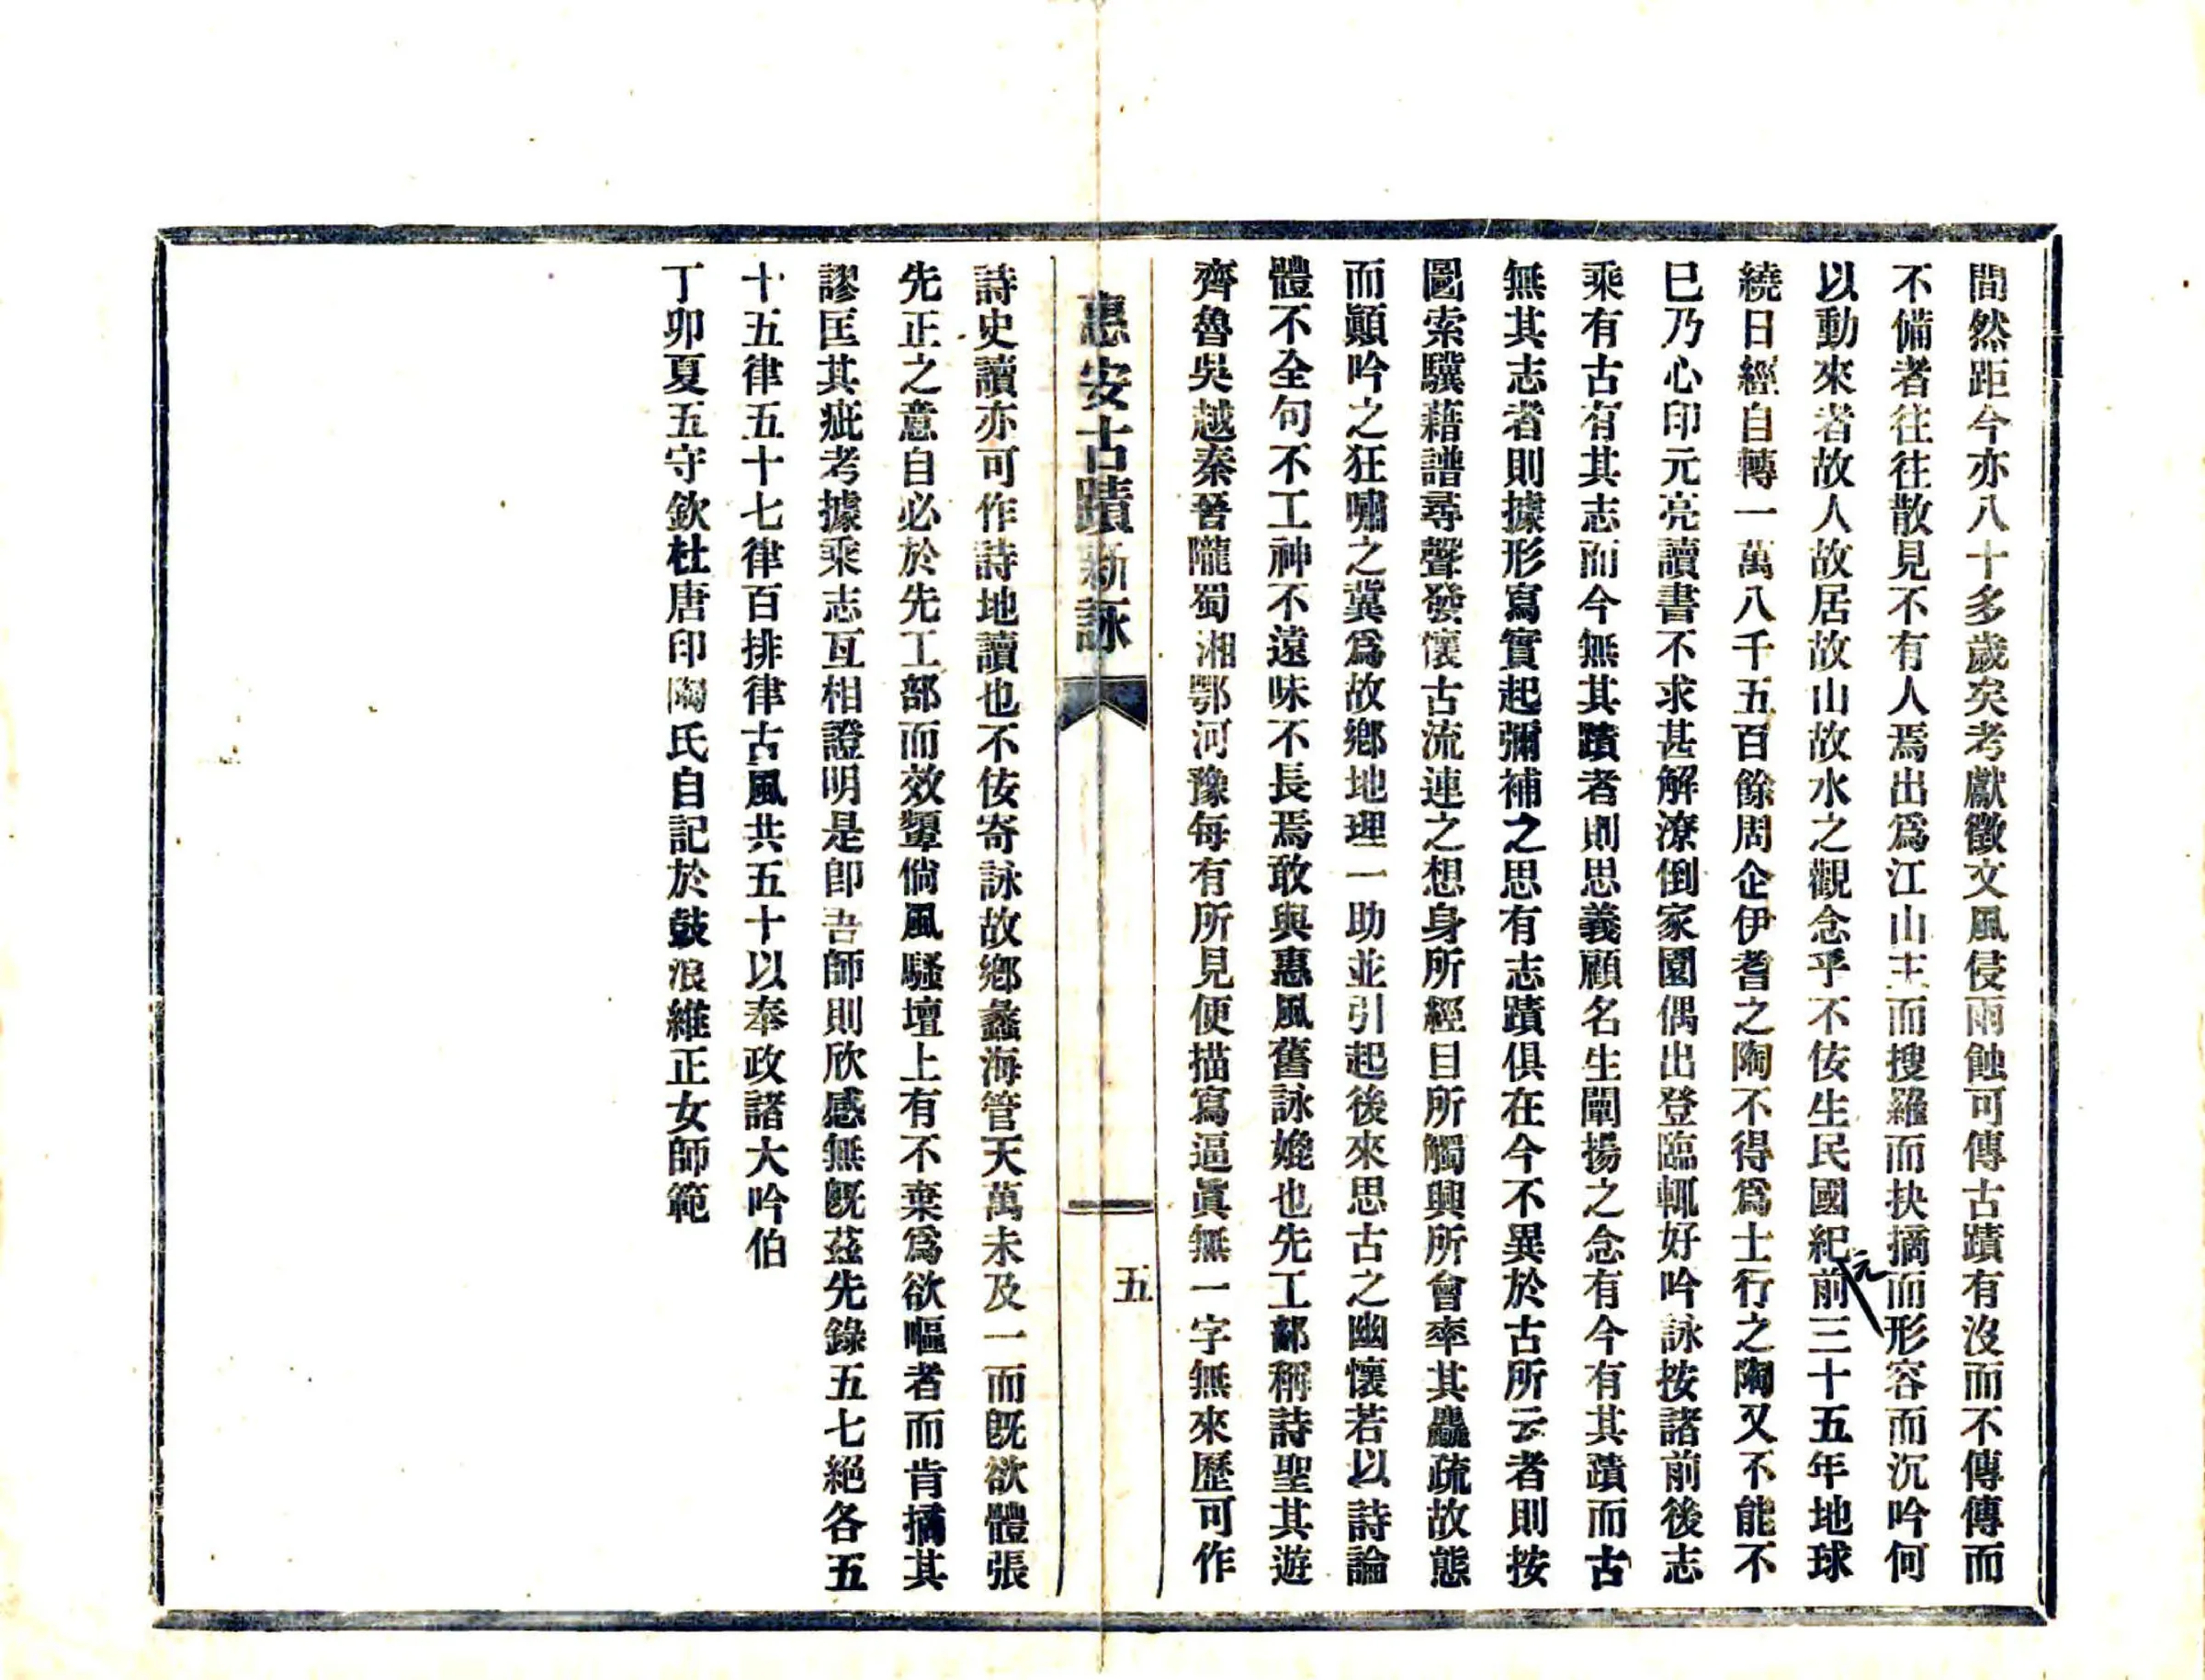 間然距今亦八十多歲矣考獻徵文風侵雨蝕可傳古蹟有沒而不傳傳而
不備者往往散見不有人焉出爲江山主而搜羅而抉摘而形容而沉吟何
以動來者故人故居故山故水之觀念乎不佞生民國紀元前三十五年地球
繞日經自轉一萬八千五百餘周企伊耆之陶不得爲士行之陶又不能不
巳乃心印元亮讀書不求甚解潦倒家園偶出登臨輒好吟詠按諸前後志
乘有古有其志而今無其蹟者則思義顧名生闡揚之念有今有其蹟而古
無其志者則據形寫實起彌補之思有志蹟俱在今不異於古所云者則按
圖索驥藉譜尋聲發懷古流連之想身所經目所觸興所會率其麤疏故態
而顚吟之狂嘯之冀爲故鄉地理一助並引起後來思古之幽懷若以詩論
體不全句不工神不遠味不長焉敢與惠風舊詠媲也先工部稱詩聖其遊
齊魯吳越秦晉隴蜀湘鄂河豫每有所見便描寫逼眞無一字無來歷可作
惠安古蹟新詠
五
詩史讀亦可作詩地讀也不佞寄詠故鄉蠡海管天萬未及一而旣欲體張
先正之意自必於先工部而效顰倘風騷壇上有不棄爲欲嘔者而肯摘其
謬匡其疵考據乘志互相證明是卽吾師則欣感無旣茲先錄五七絕各五
十五律五十七律百排律古風共五十以奉政諸大吟伯
丁卯夏五守欽杜唐印陶氏自記於鼓浪維正女師範